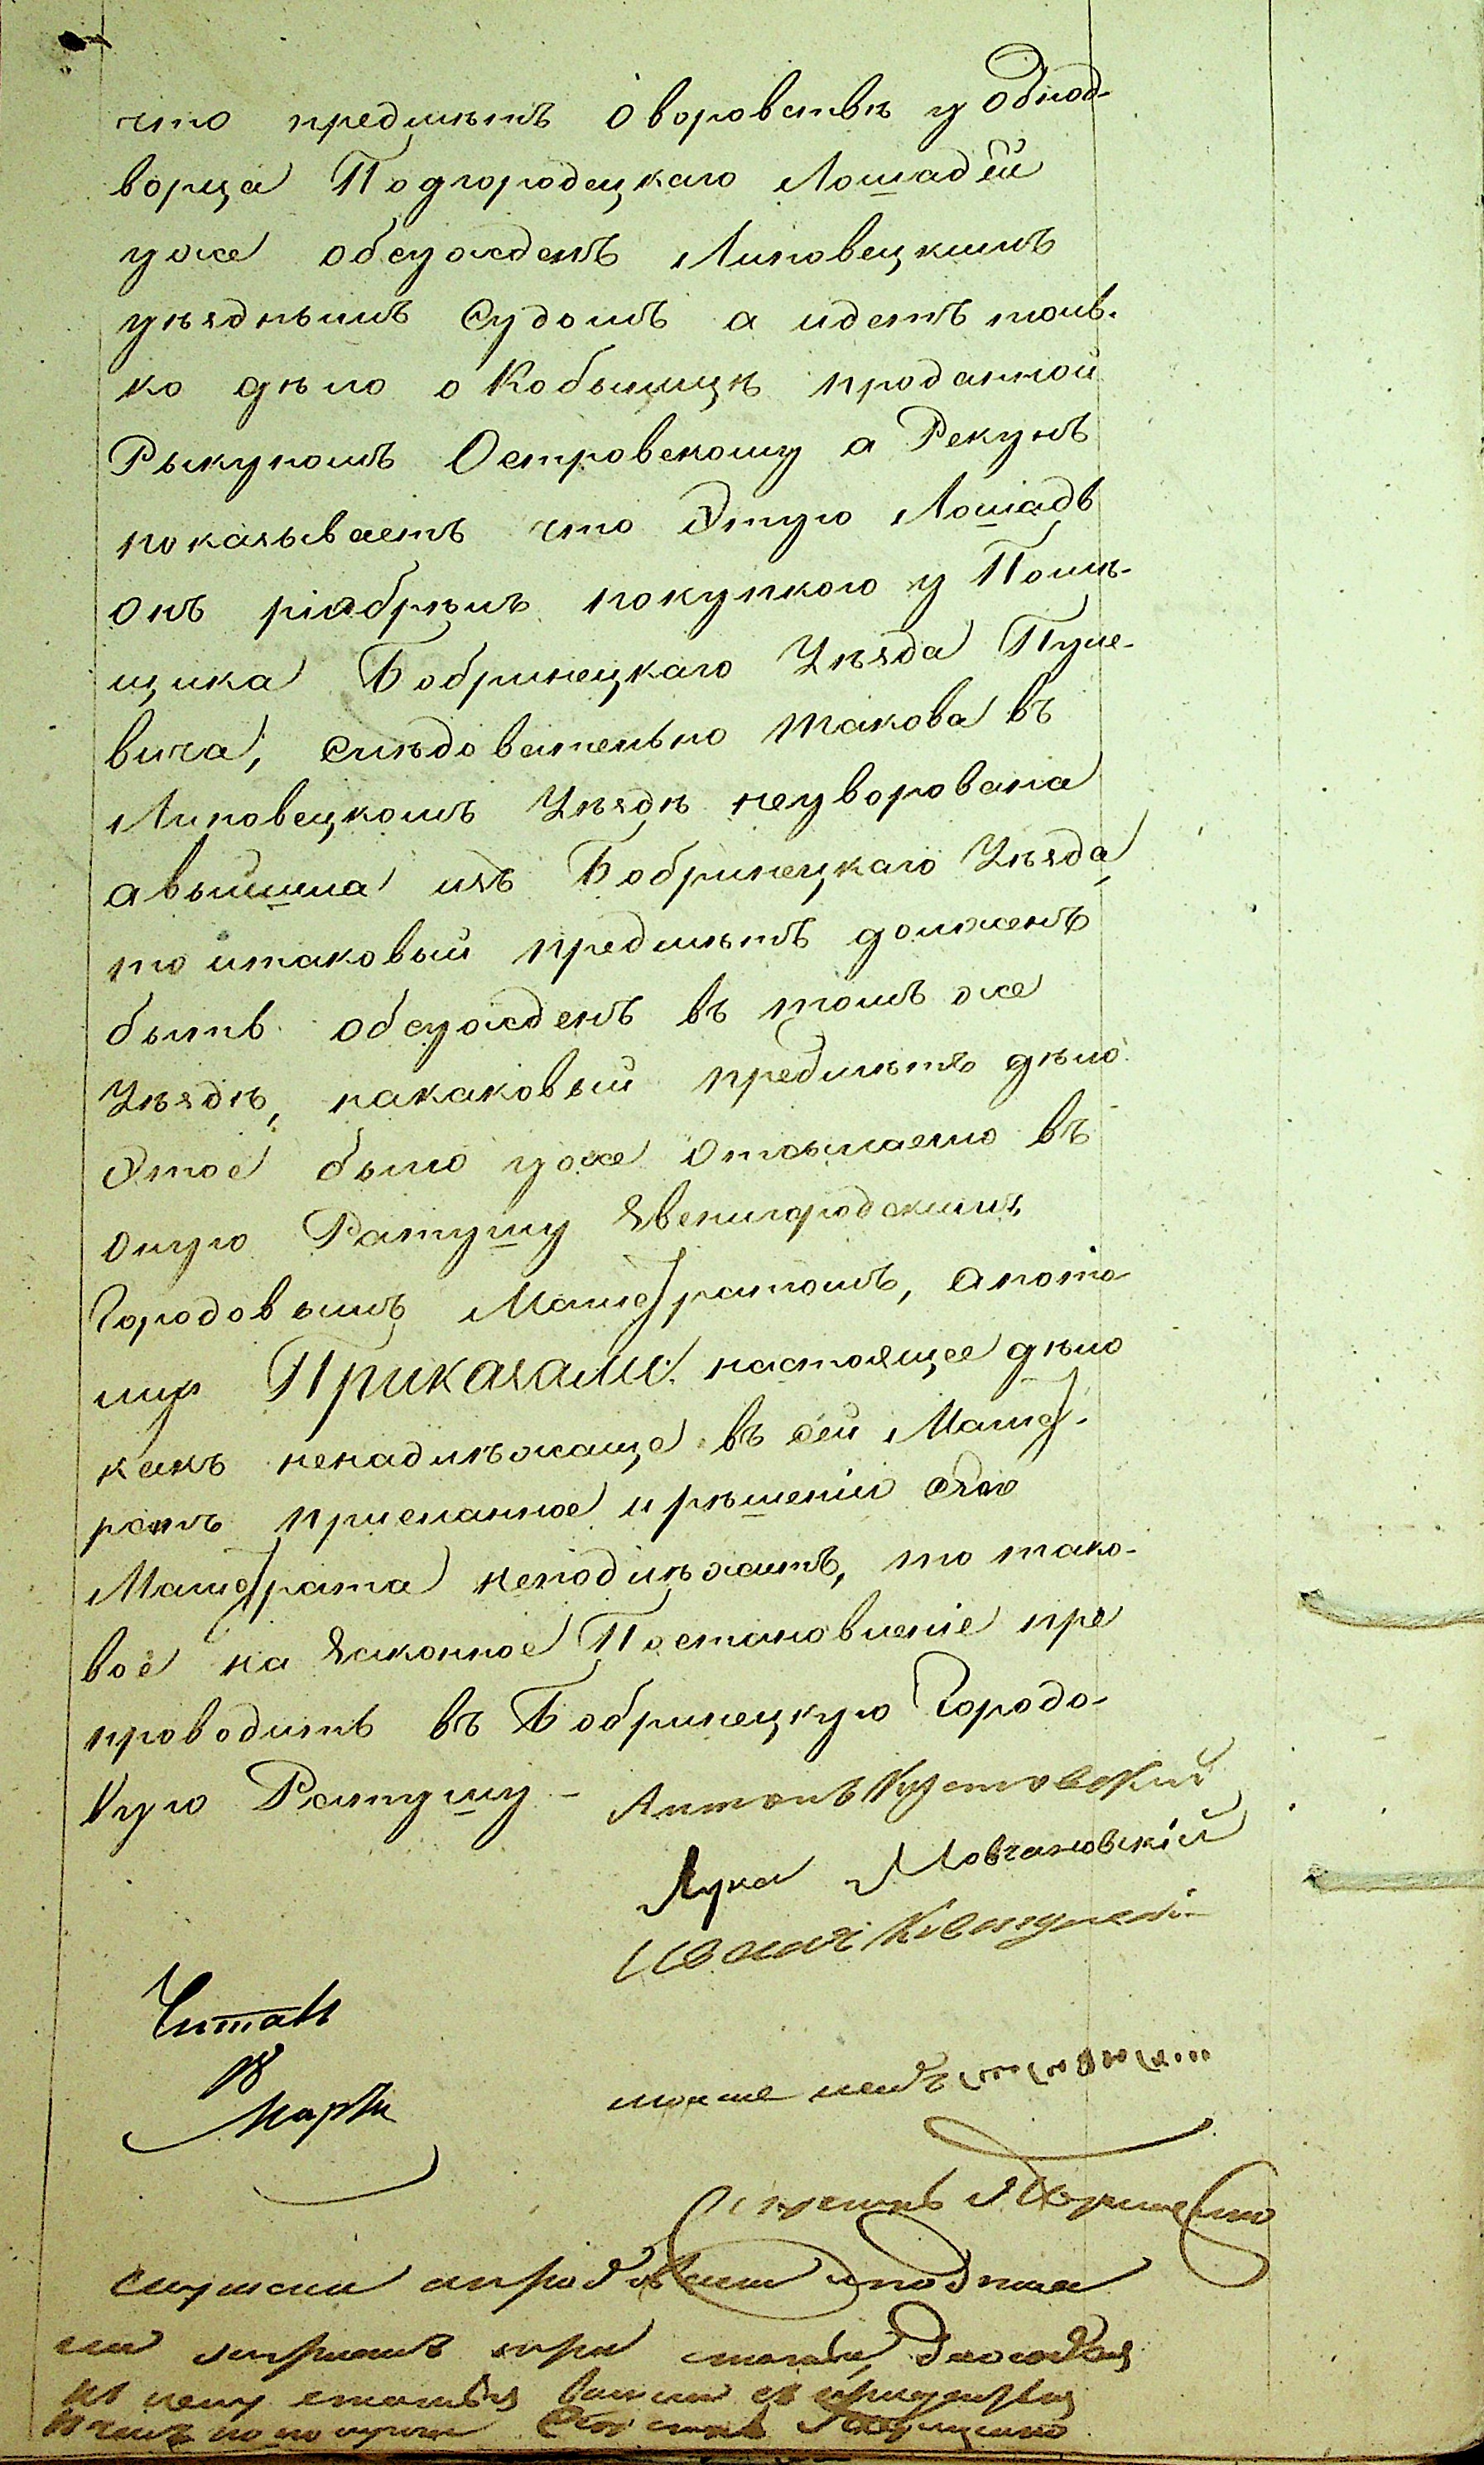 что предмѣтъ о воровствѣ у Однод-
ворца Подгородецкаго Лошадей
уже обсужденъ Липовецкимъ
уѣзднымъ Судомъ а идетъ толь-
ко дѣло о Кобылицѣ проданной
Рыкуномъ Островскому а Рекунъ
показываетъ что Этую Лошадь
онъ pіабрѣлъ покупкою у Помѣ-
щика Бобринецкаго Уѣзда
вича, слѣдовательно такова въ
Липовецкомъ Уѣздѣ неуворована
авышла изъ Бобринецкаго Уѣзда,
то итаковый предмѣтъ долженъ
быть обсужденъ въ томъ же
Уѣздѣ, накаковый предмѣтъ дѣло
Этое было уже отсылаемо въ
оную Ратушу Звенигородскимъ
Городовымъ Магистратомъ, апото
му Приказали: настояще дѣло
какъ ненадлѣжаще въ сей Магист-
ратъ присланное и рѣшенію сего
Магистрата неподлѣжитъ, то тако-
вое на Законное Постановленіе пре
проводить въ Бобринецкую Городо-
вую Ратушу –
Лука Мовчановскій
Иванъ
Читалъ
18
Марта